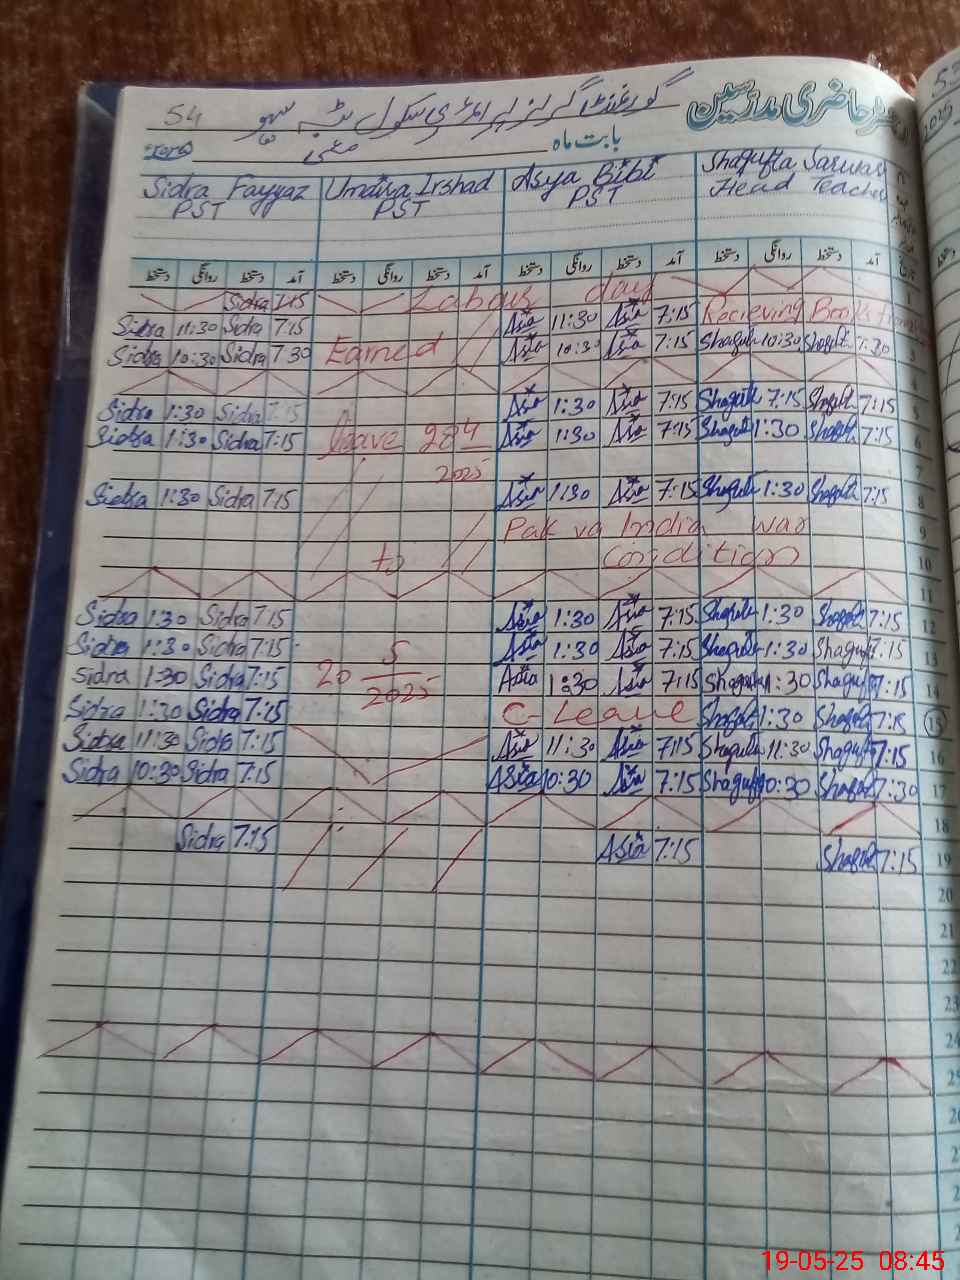 54 گورنمنٹ گرلز پرائمری سکول بٹہ حاضری مدرسین
بابت ماہ مئی
Sidra Fayyaz Umaira Irshad Asya Bibi Shagufta Sarwar
PST PST PST Head Teacher
دستخط روانگی دستخط آمد دستخط روانگی دستخط آمد دستخط روانگی دستخط آمد دستخط روانگی دستخط آمد
Sidra 7:15 Labour day 1
Sidra 11:30 Sidra 7:15 Asia 11:30 Asia 7:15 Recieving Books
Sidra 10:30 Sidra 7:30 Earned Asia 10:30 Asia 7:15 Shaguft 10:30 Shagft 7:30 3
4
Sidra 1:30 Sidra 7:15 Asia 1:30 Asia 7:15 Shagufta 7:15 Shagft 7:15 5
Sidra 1:30 Sidra 7:15 leave 28 4 Asia 1:30 Asia 7:15 Shaguft 1:30 Shagft 7:15 6
2025 7
Sidra 1:30 Sidra 7:15 Asia 1:30 Asia 7:15 Shaguft 1:30 Shagft 7:15 8
Pak va India war 9
to condition 10
11
Sidra 1:30 Sidra 7:15 Asia 1:30 Asia 7:15 Shaguft 1:30 Shagft 7:15 12
Sidra 1:30 Sidra 7:15 5 Asia 1:30 Asia 7:15 Shaguft 1:30 Shaguft 7:15 13
Sidra 1:30 Sidra 7:15 20 2025 Asia 1:30 Asia 7:15 Shaguft 1:30 Shaguft 7:15 14
Sidra 1:30 Sidra 7:15 C-Leave Shagft 1:30 Shaguft 7:15 15
Sidra 11:30 Sidra 7:15 Asia 11:30 Asia 7:15 Shaguft 11:30 Shaguft 7:15 16
Sidra 10:30 Sidra 7:15 Asia 10:30 Asia 7:15 Shaguft 10:30 Shagft 7:30 17
18
Sidra 7:15 Asia 7:15 Shagft 7:15 19
20
21
22
23
24
25
19-05-25 08:45